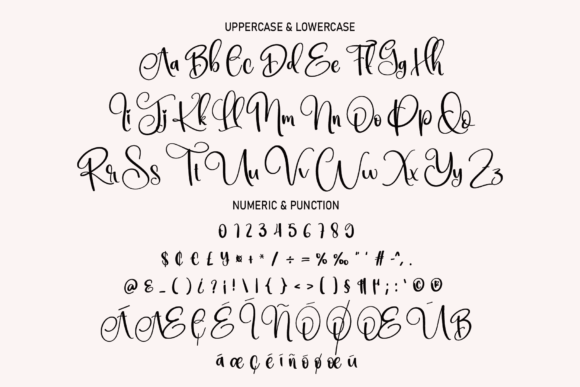 UPPERCASE & LOWERCASE
Aa Bb Cc Dd Ee Ff Gg Hh
Ii Jj Kk Ll Mm Nn Oo Pp Qq
Rr Ss Tt Uu Vv Ww Xx Yy Zz
NUMERIC & PUNCTION
0 1 2 3 4 5 6 7 8 9
$ ¢ € £ ¥ ¤ + * / ÷ = % ‰ " ' # - ^ , .
@ & _ ( ) ¿ ? ¡ ! \ | { } < > ( ) § ¶ ; : ' © ®
Á Æ Ç É Í Ñ Ó Ø Œ Ú ß
á æ ç é í ñ ó ø œ ú